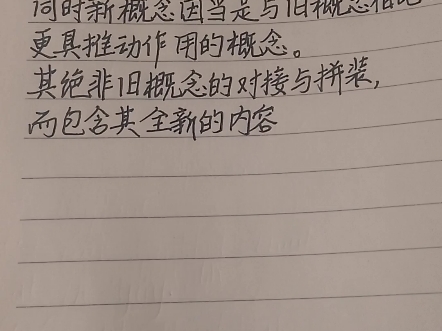 同时新概念因当是与旧概念相比
更具推动作用的概念。
其绝非旧概念的对接与拼装,
而包含其全新的内容